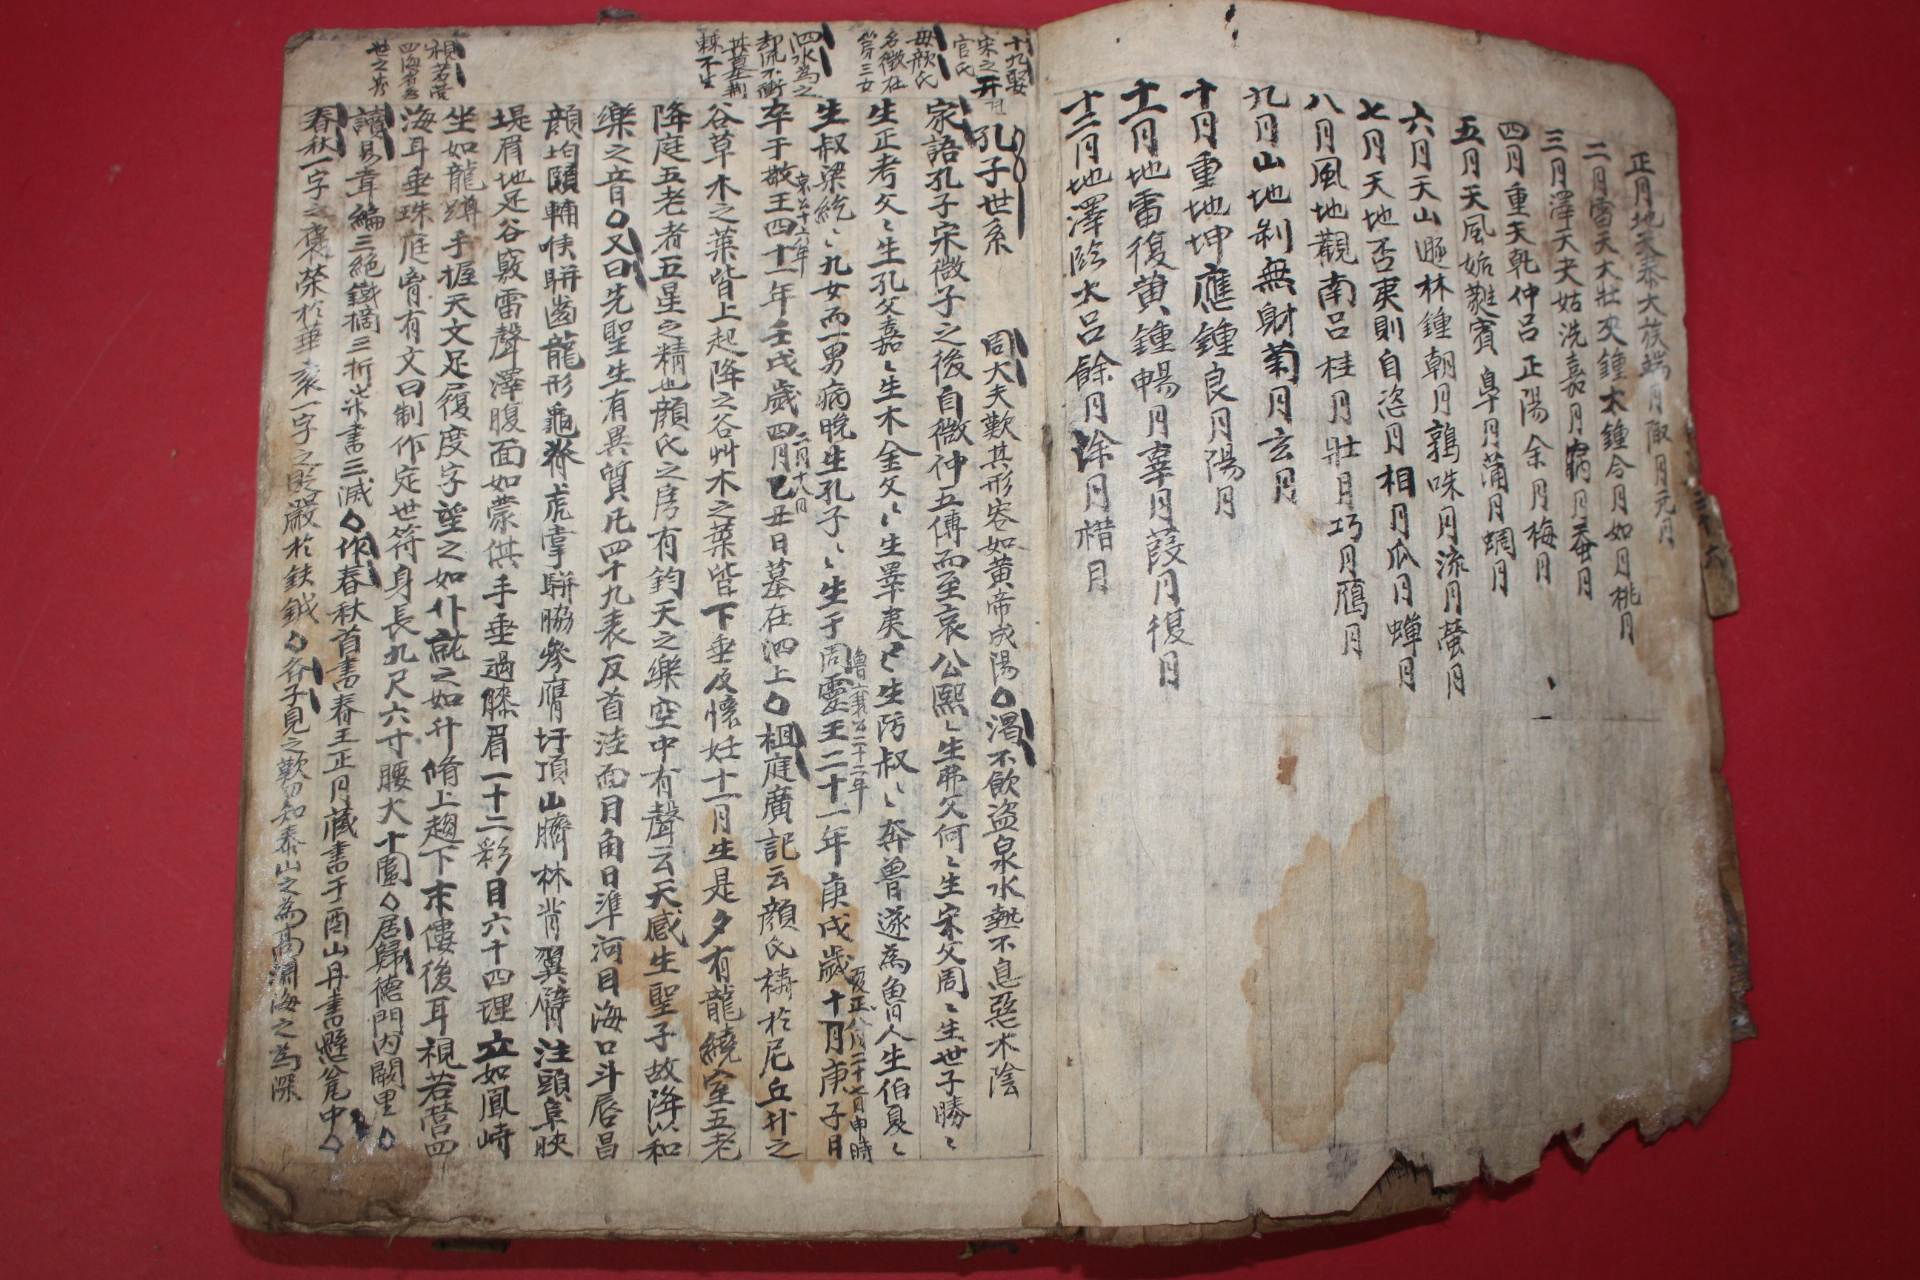 正月地天泰大簇端月陬月元月
二月雷天大壯夾鍾太鍾令月如月桃月
三月澤天夬姑洗嘉月寎月蚕月
四月重天乾仲呂正陽余月梅月
五月天風姤蕤賓皐月蒲月蜩月
六月天山遯林鍾朝月鶉味月流月螢月
七月天地否夷則自恣月相月瓜月蟬月
八月風地觀南呂桂月壯月巧月鴈月
九月山地剝無射菊月玄月
十月重地坤應鍾良月陽月
十一月地雷復黃鍾暢月辜月葭月復月
十二月地澤臨大呂餘月涂月楷月
十九娶
宋之幵
官氏
母顔氏
名徵在
第三女
泗水爲之
却流不衝
其墓荊
棘不生
視若營
四海
世之
孔子世系 周大夫歎其形容如黃帝成湯○渴不飮盜泉水熱不息惡木陰
家語孔子宋微子之後自微仲五傳而至哀公熙〻生弗父何〻生宋父周〻生世子勝〻
生正考父〻生孔父嘉〻生木金父〻生睪夷〻生防叔〻奔魯遂爲魯人生伯夏〻
生叔梁紇〻九女而一男病晚生孔子〻生于周靈王二十一年庚戌歲十月庚子日
魯襄公二十二年
夏正八月二十七日申時
卒于敬王四十一年壬戌歲四月己丑日墓在泗上○祖庭廣記云顔氏禱於尼丘升之
哀公十六年
二月十八日
谷草木之葉皆上起降之谷艸木之葉皆下垂及懷妊十一月生是夕有龍繞室五老
降庭五老者五星之精也顔氏之房有鈞天之樂空中有聲云天感生聖子故降以和
樂之音○又曰先聖生有異質凡四十九表反首洼面月角日準河目海口斗唇昌
顔均頤輔喉騈齒龍形龜脊虎掌騈脇參膺圩頂山臍林背翼臂注頭阜䀹
堤眉地足谷竅雷聲澤腹面如蒙供手垂過膝眉一十二彩目六十四理立如鳳峙
坐如龍蹲手握天文足履度字望之如仆就之如升脩上趨下末僂後耳視若營四
海耳垂珠庭胷有文曰制作定世符身長九尺六寸腰大十圍○居歸德門內闕里○
讀易韋編三絕鐵摘三折柒書三滅○作春秋首書春王正月藏書于酉山丹書懸瓮中○
春秋一字之褒榮於華袞一字之貶嚴於鈇鉞○谷子見之歎曰知泰山之爲高淵海之爲深